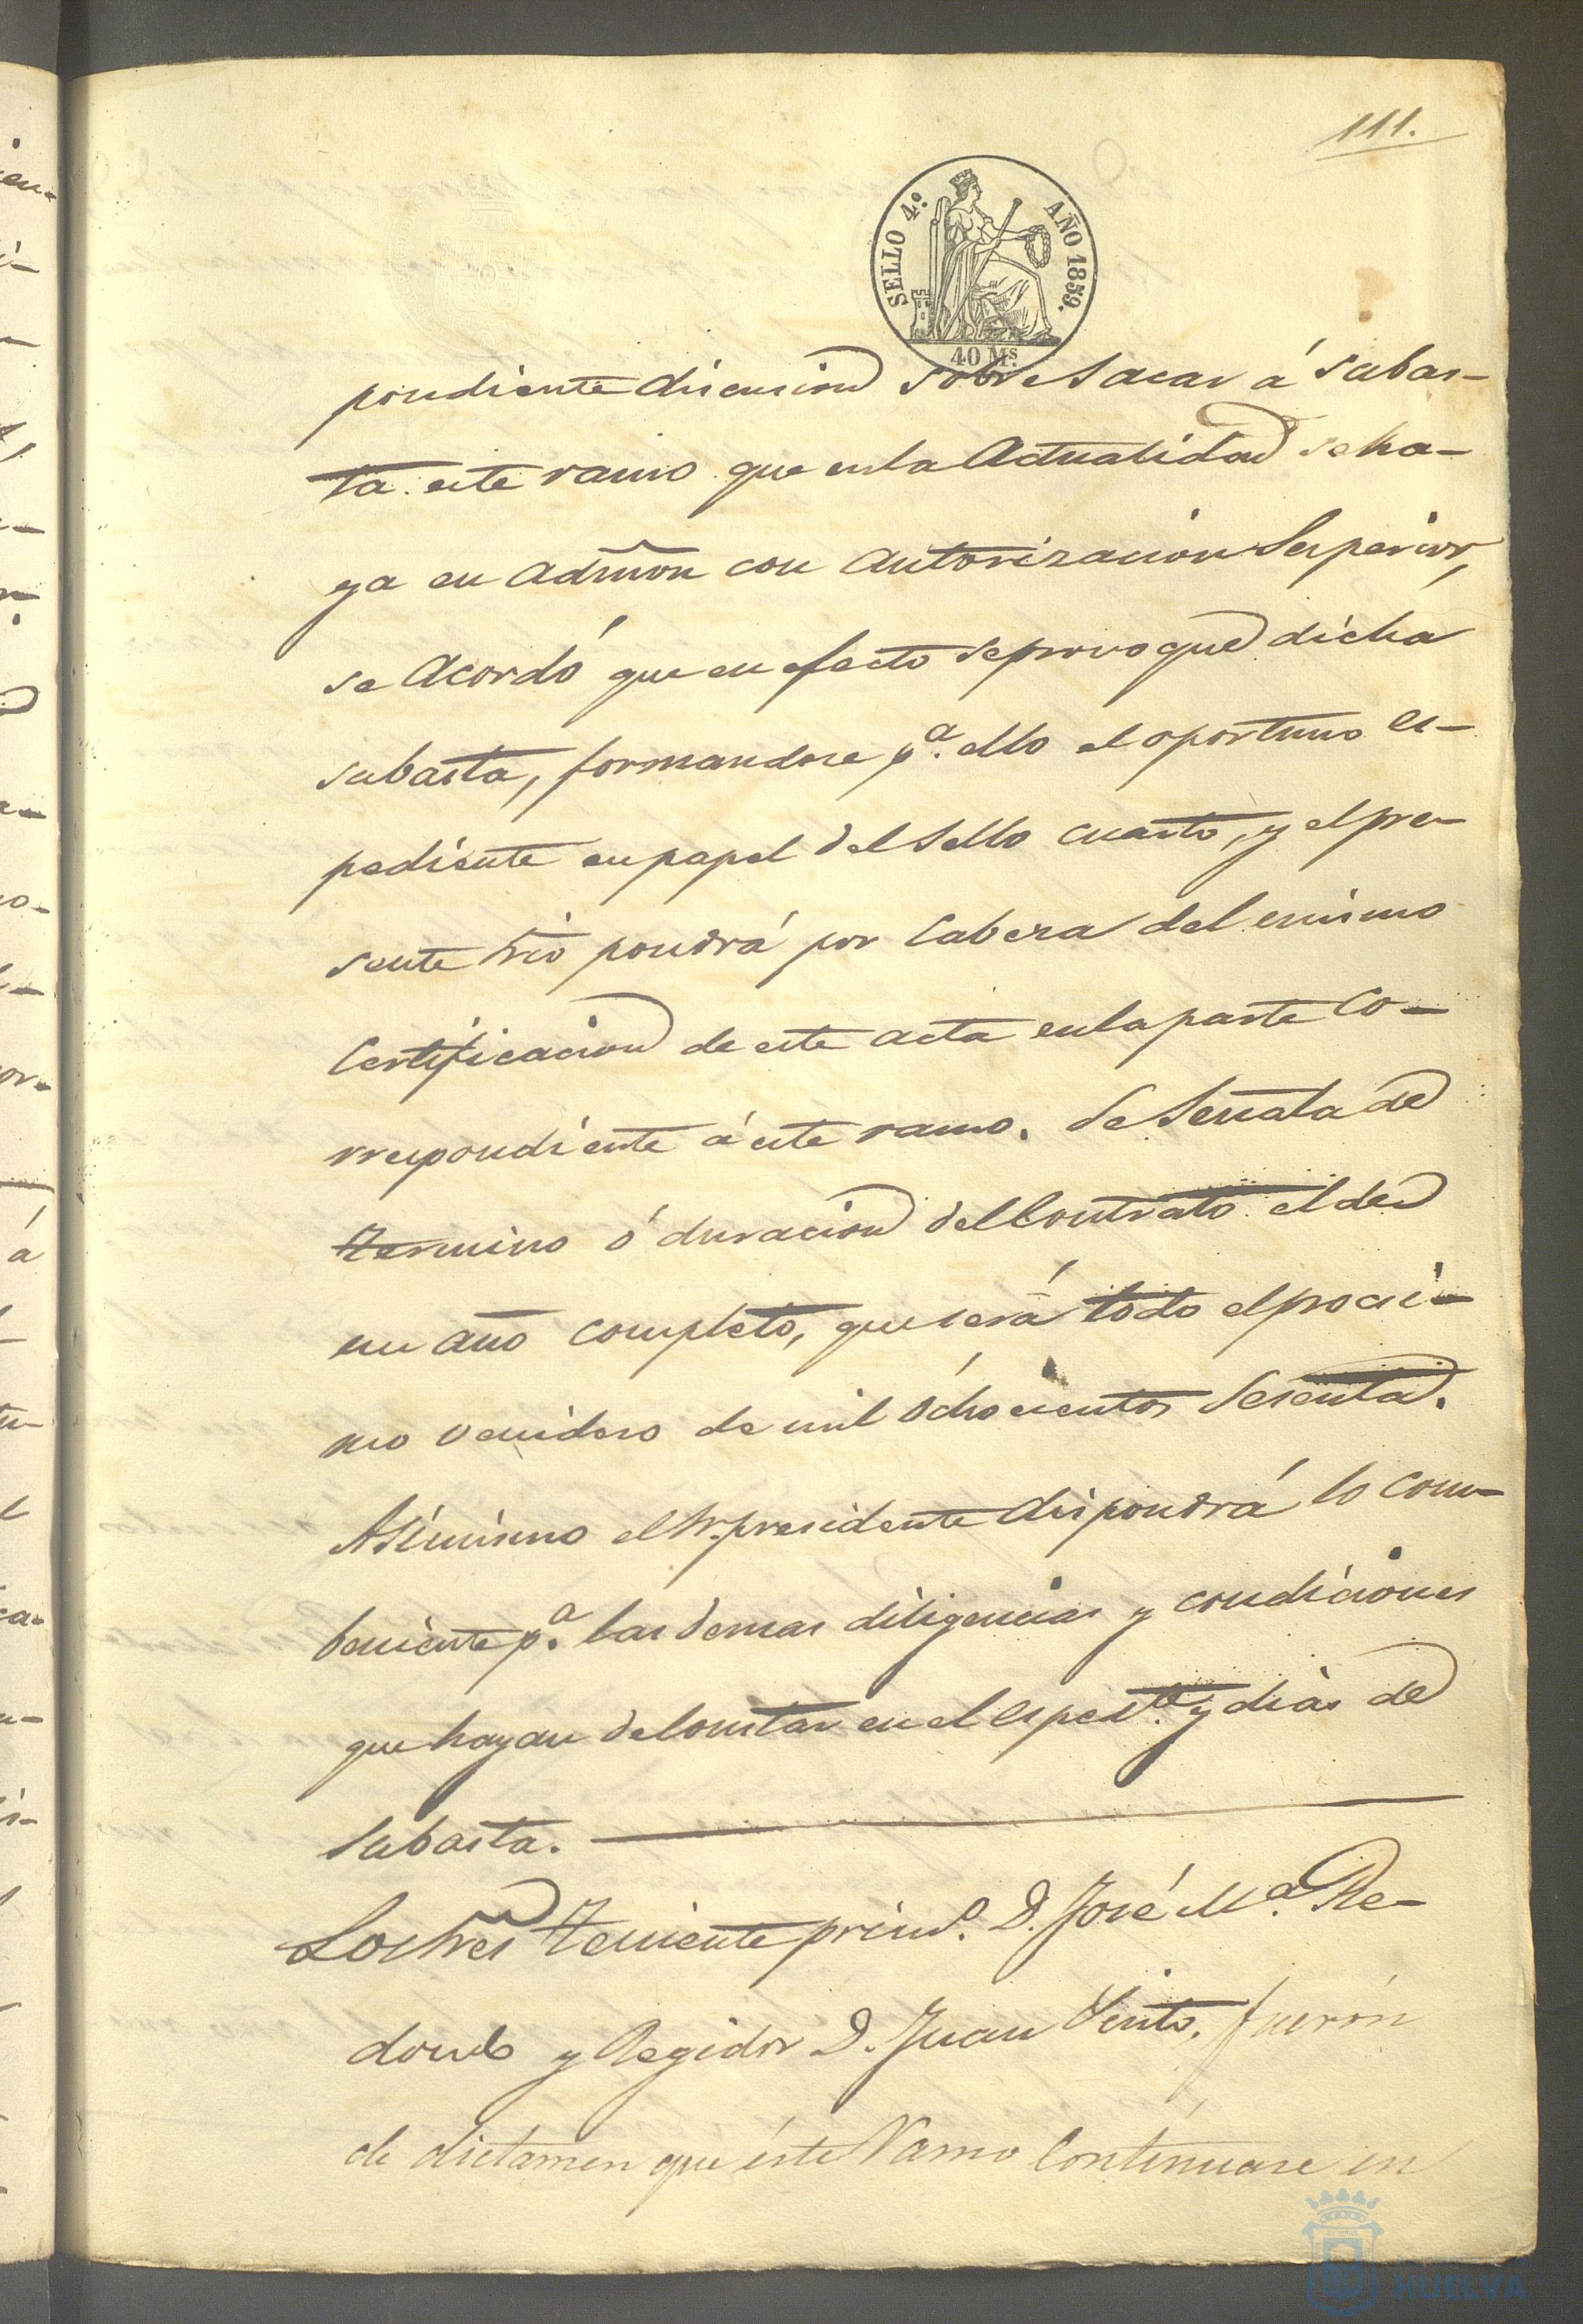 111.
SELLO 4.º AÑO 1859.
40 Ms.
pondiente discusion sobre sacar á subas-
ta este ramo que en la Actualidad se ha-
ya en admon con autorizacion Superior,
se Acordó que en efecto se provoque dicha
subasta, formandose pª. ello el oportuno es-
pediente en papel del Sello cuarto, y el pre-
sente Srio pondrá por Cabeza del mismo
Certificacion de este acta en la parte co-
rrespondiente á este ramo. Se Señala de
termino ó duracion del Contrato el de
un año completo, que será todo el procsi-
mo venidero de mil ochocientos Sesenta.
Asimismo el Sr. presidente dispondrá lo com-
beniente pª. las demas diligencias y condiciones
que hayan de Constar en el espedte. y dias de
Subasta.
Los Sres Teniente primo. D. José Mª. Re-
dondo y Regidor D. Juan Pinto, fuerón
de dictamen que éste Ramo Continuase en
HUELVA